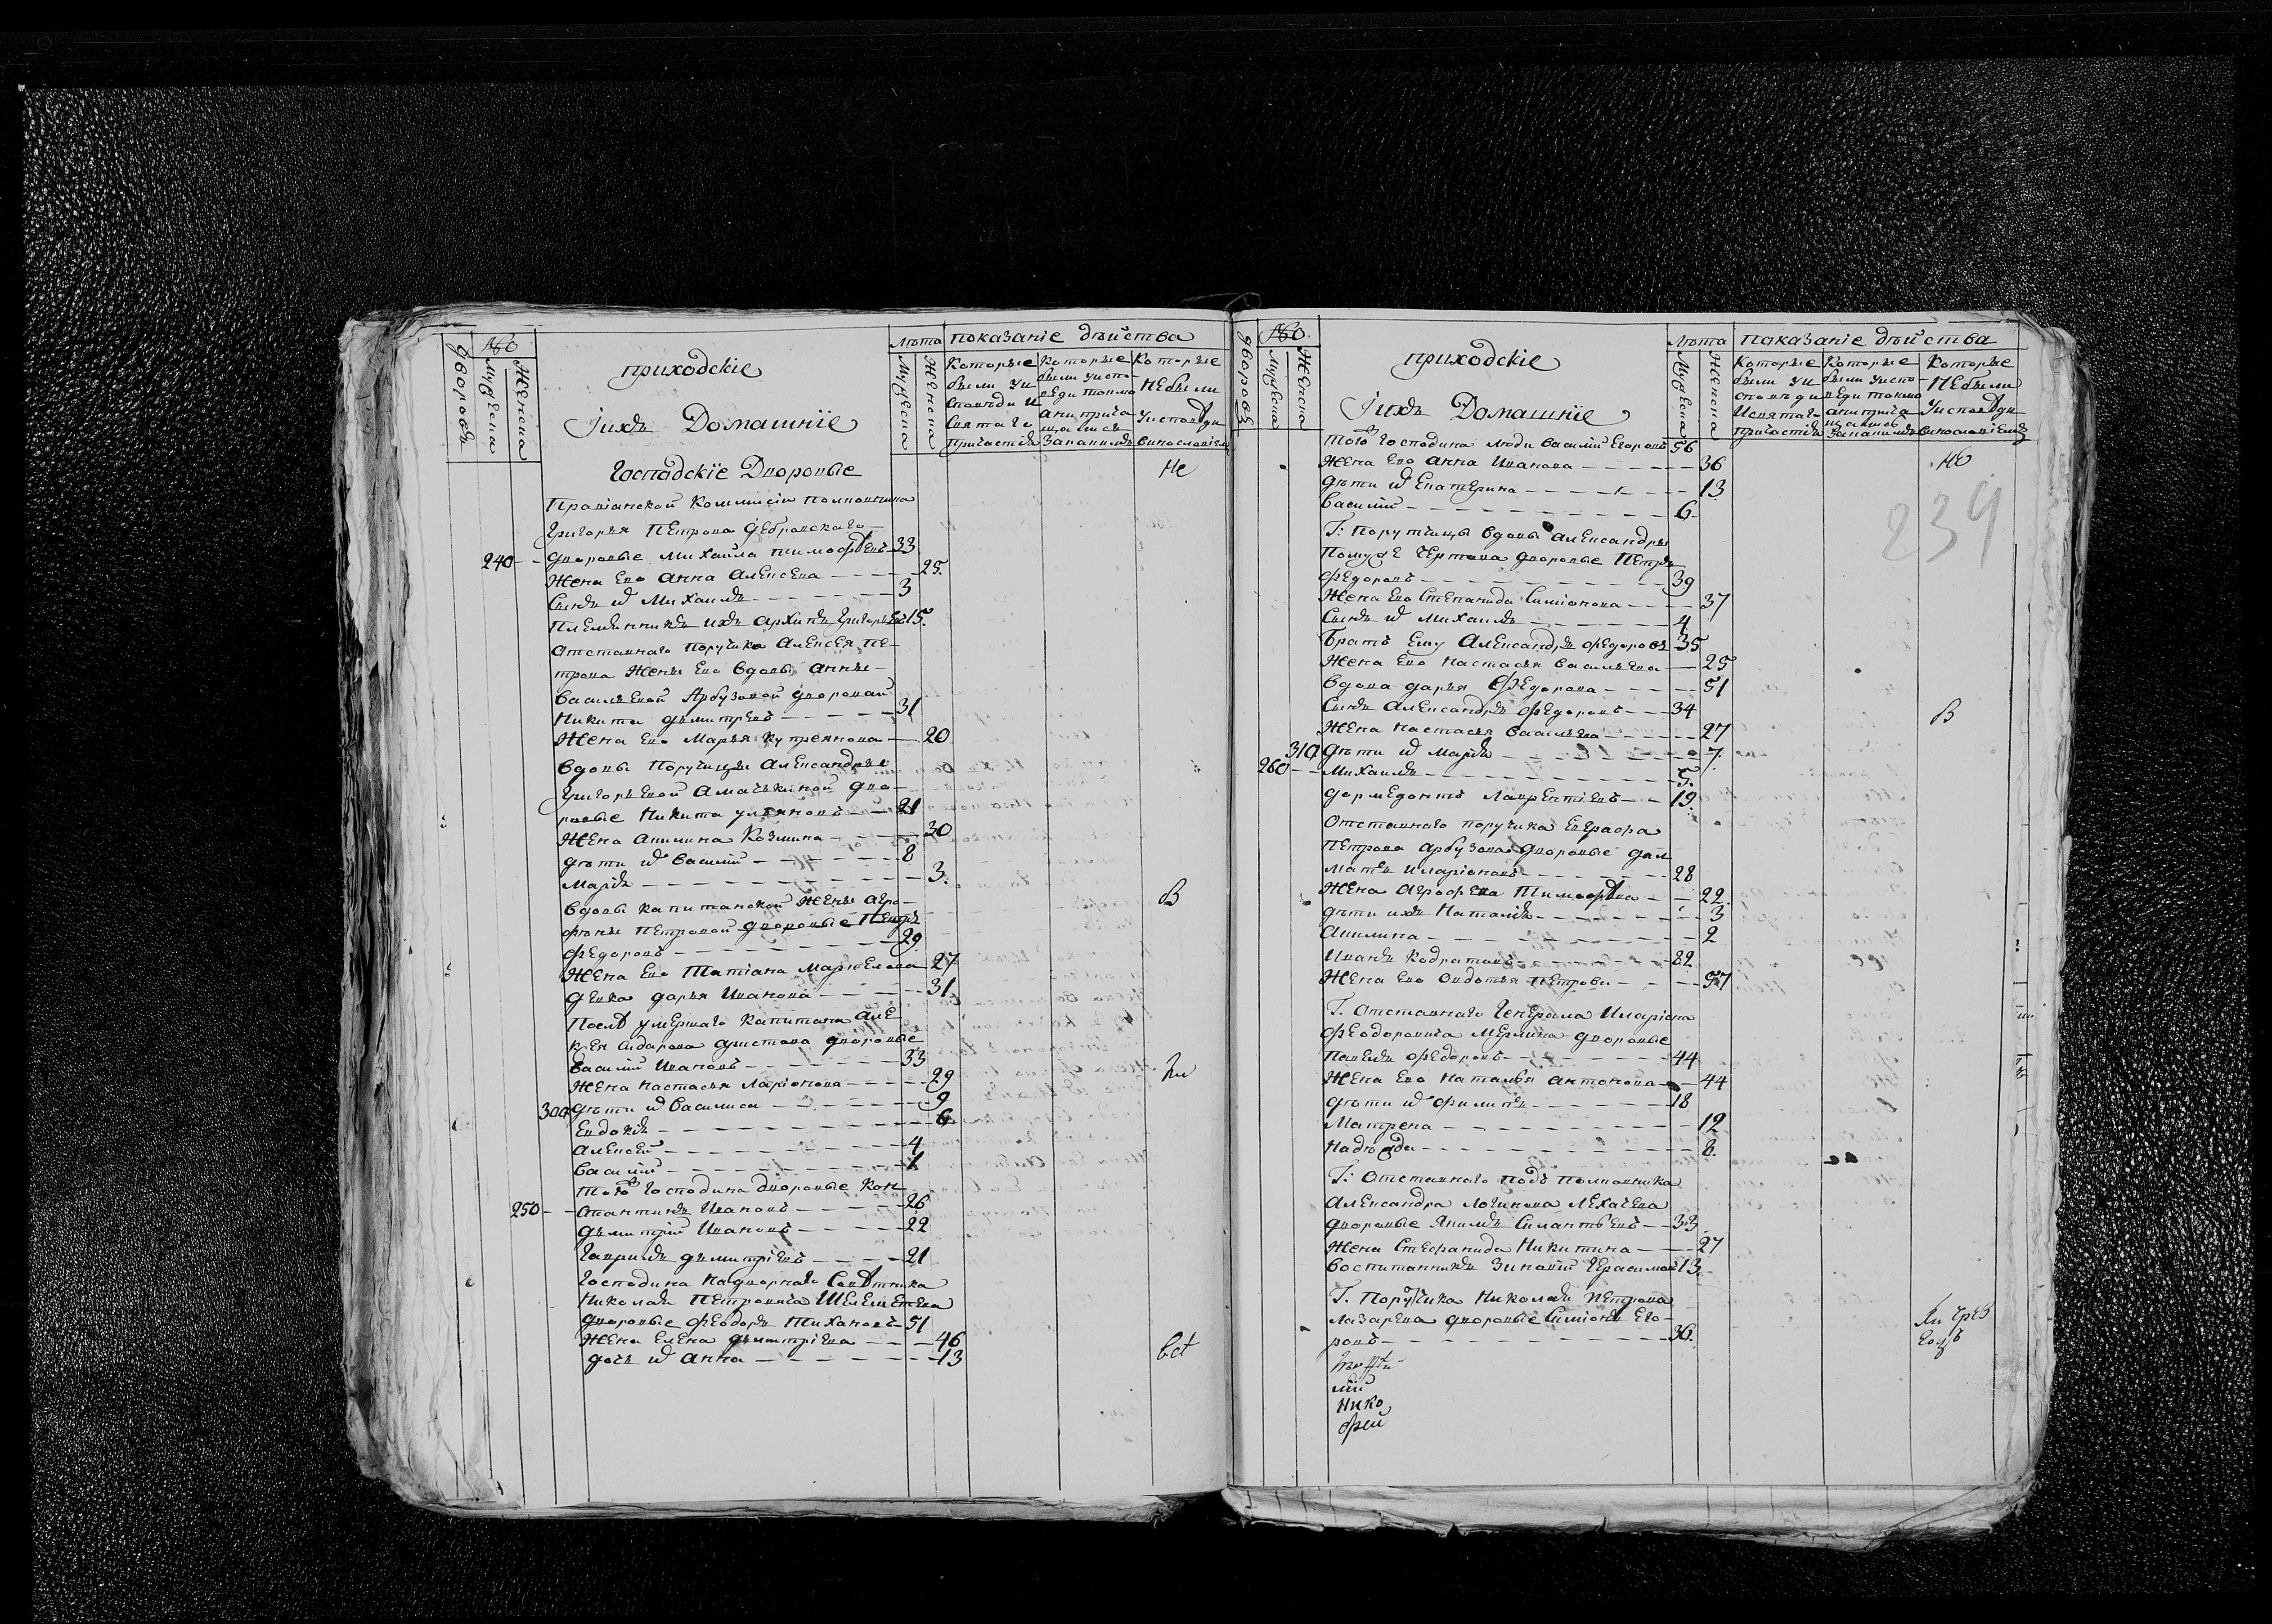 дворовъ
Мужеска
Женска
приходскіе
Iихъ Домашніе
лѣта
Мужеска
Женска
показаніе дѣйства
Которые были уисповѣди и святаго причастія
Которые были уисповѣди токмо анипричащались Закакимъ
Которые Небыли уисповѣди винословіемъ
Господскіе Дворовые
Не
Правіанской Коммисіи полковника
Григорья Петрова
240 - - дворовые Михайла тимофѣевъ - 33
Жена Ево Анна Алексева - - - - 25.
Сынъ ихъ Михаилъ - - - - - 3
Племянникъ ихъ Архипъ Григорьевъ 15.
Отставнаго Поручика Алексея Пе-
трова Жены Ево Вдовы Анны -
Васильевой Арбузовой дворовой
Никита дьмитревъ - - - - - 31
Жена Ево Марья Купреянова - - 20
Вдовы Поручицы Александры
Григорьевой двo-
ровые Никита ульяновъ - - 21
Жена Акилина Козмина - - - - 30
дѣти ихъ Василий - - - - - - 8
Марія - - - - - - - - - - 3.
Вдовы капитанской Жены Агро-
фены Петровой дворовые Петръ
В
Федоровъ - - - - - - - - 29
Жена Ево Татіана Маркелова - 27
девка дарья Иванова - - - - - 31
Послѣ умершаго Капитана Але-
ксея Аристова дворовые
Василий Ивановъ - - - - - - 33
Жена Настасья Ларіонова - - - - - 29
300 дѣти ихъ Василиса - - - - - - 9
Евдокія - - - - - - - - - - - 6
Алексей - - - - - - - - - 4
Василий - - - - - - - - - 1
Того Господина дворовые Кон-
250 - - стантинъ Ивановъ - - - - - - 26
дьмитрий Ивановъ - - - - - 22
Гаврилъ дьмитріевъ - - - - - 21
Господина Надворнаго Совѣтника
Николая Петровича Шелеметева
дворовые Феодоръ Тихановъ - 51
Жена Елена дьмитріева - - - 46
дочь ихъ Анна - - - - - - - 13
дворовъ
Мужеска
Женска
приходскіе
Iихъ Домашніе
лѣта
Мужеска
Женска
показаніе дѣйства
Которые были уисповѣди Исвятаго причастія
Которые были уисповѣди токмо анипричащались Закакимъ
Которые Небыли уисповѣди винословіемъ
Того Господина люди Василий Егоровъ 56
Жена Ево Анна Иванова - - - - - - 36
дѣти ихъ Екатерина - - - - - - - 13
Василий - - - - - - - - - - - 6
239
Г: Поручицы Вдовы Александры
Помуже Чертова дворовые Петръ
Федоровъ - - - - - - - - - - - 39
Жена Ево Степанида Симіонова - - - - 37
Сынъ ихъ Михаилъ - - - - - - - 4
Братъ Ему Александръ Федоровъ - 35
Жена Ево Настасья Васильева - - 25
Вдова дарья Федорова - - - - - 51
Сынъ Александръ Федоровъ - - 34
В
Жена Настасья Васильева - - - - - 27
310 дѣти ихъ Марія - - - - - - 7.
260 - - Михаилъ - - - - - - - - - 5.
дормедонтъ Лаврентіевъ - - 19.
Отставнаго поручика Евграфа
Петрова Арбузова дворовые дал
матъ Иларіоновъ - - - - - - - 28
Жена Агрофена Тимофѣева - - 22.
дѣти ихъ Наталія - - - - - - - 3
Акилина - - - - - - - - - - 2
Иванъ Кодратовъ - - - - - - - 82
Жена Ево Овдотья Петрова - - - - 57
Г. Отставнаго Генерала Иларіона
Феодоровича Мерлина дворовые
Павелъ Федоровъ - - - - - - 44
Жена Ево Наталья Антонова - - 44
дѣти ихъ Филипъ - - - - - - - 18
Матрена - - - - - - - - - - - 12
Надѣжда - - - - - - - - - - - 8.
Г: Отставнаго подъ Полковника
Александра Логинова Лехачева
дворовые Якимъ Силантьевъ - - 33
Жена Стефанида Никитина - - - 27
Воспитанникъ Зиновий Герасимовъ 13.
Г. Поручика Николая Петрова
Лазарева дворовые Симіонъ Его-
ровъ - - - - - - - - - - - - 36.
лий
Нико
фрей